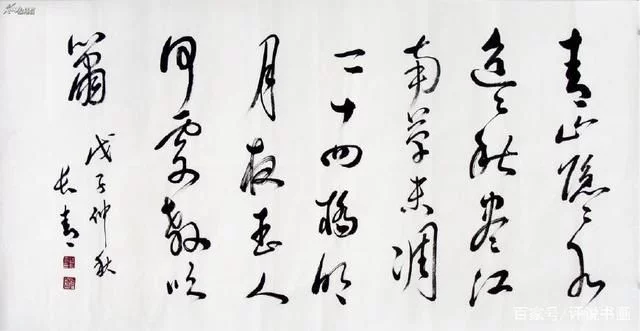 青山隱々水
迢々秋盡江
南草未凋
二十四橋明
月夜玉人
何處教吹
簫
戊子仲秋
長青
百家号/评说书画